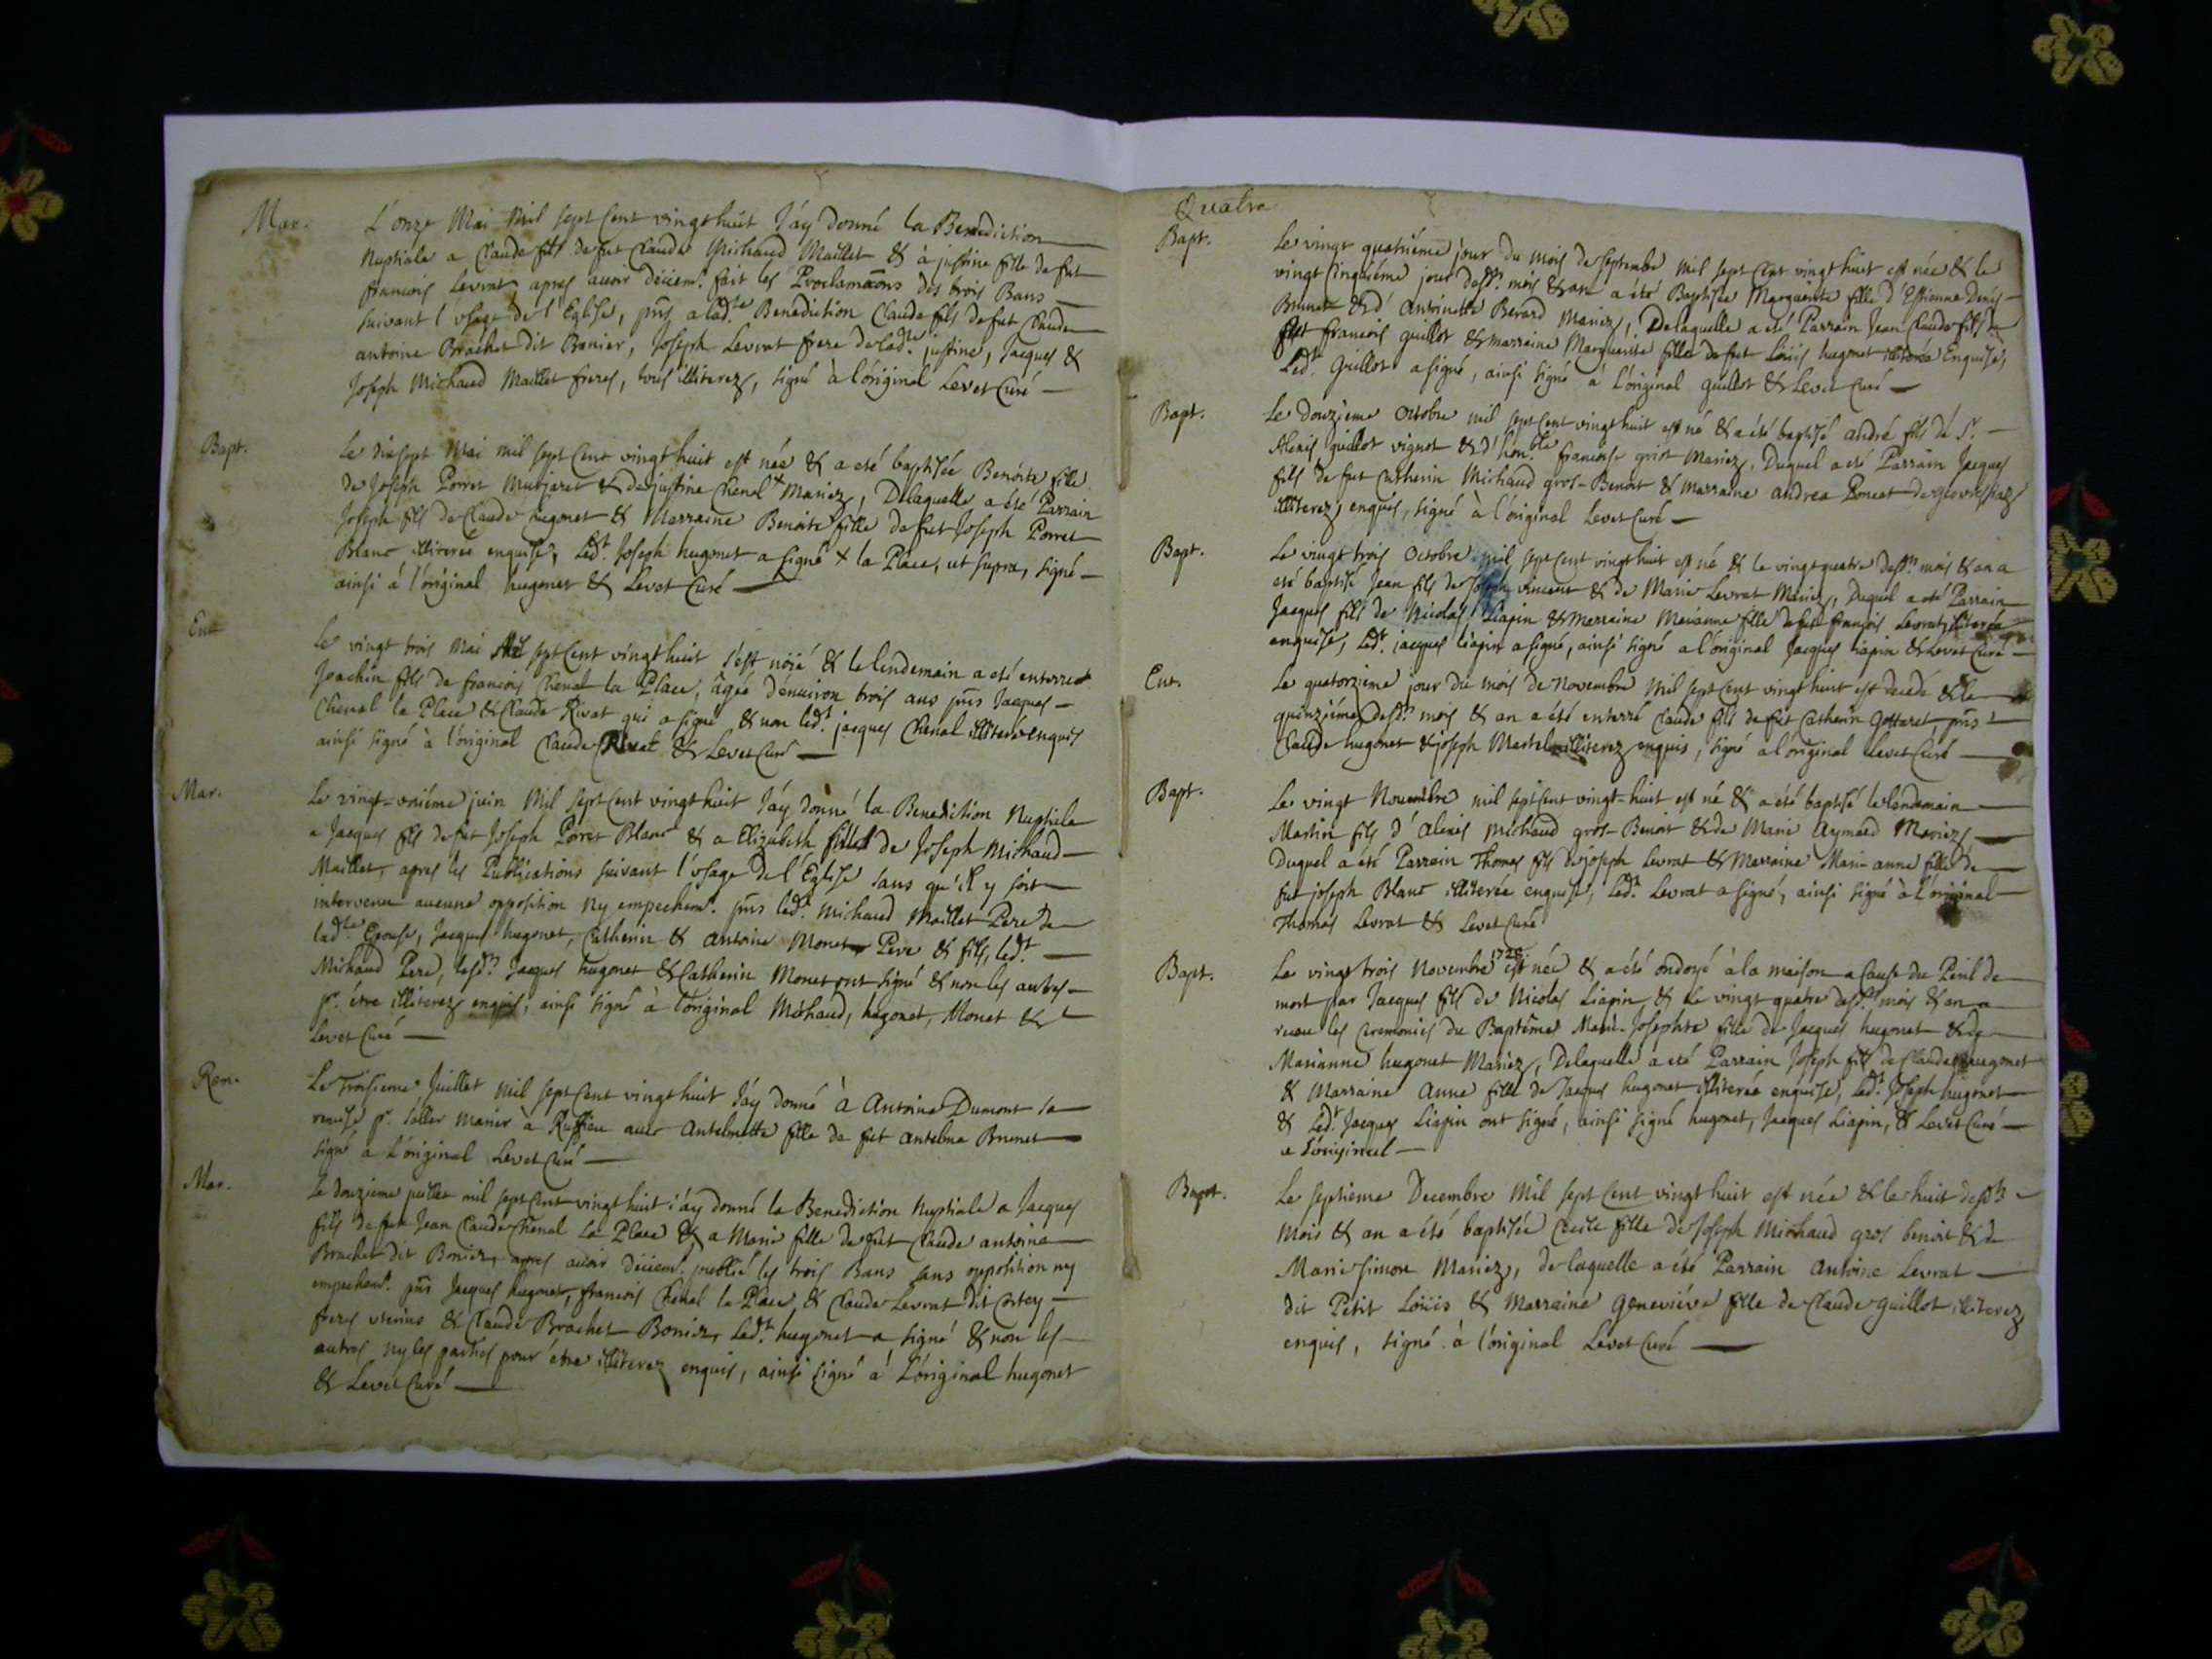 Mar. L'onze Mai Mil sept Cent vingt huit J'áy donné la Benediction
Nuptiale a Claude fils de fut Claude Michaud Maillet & à justine fille de fut
francois Levrat apres avoir décem.t fait les Proclamaõns des trois Bans
suivant l'usage de l'Eglise, pñs a lad.te Benediction Claude fils de fut Claude
antoine Brachet dit Bonier, Joseph Levrat frere de lad.te justine, Jacques &
Joseph Michaud Maillet freres, tous illiterez, signé à l'original Levet Curé
Bapt. Le dixsept Mai mil sept Cent vingt huit est née & a eté baptisée Benoite fille
de Joseph Porret Murjaret & de justine Chenal + Mariez, Delaquelle a été Parrain
Joseph fils de Claude hugonet & Marraine Benoite fille de fut Joseph Porret
Blanc illiterée enquise, Led.t Joseph hugonet a signé + la Place, ut supra, signé
ainsi à l'original hugonet & Levet Curé
Ent. Le vingt trois Mai Mil sept Cent vingt huit s'est nöié & le lendemain a eté enterré
Joachin fils de francois Chenal la Place, âgée d'environ trois ans pñs Jacques
Chenal la Place & Claude Rivat qui a signé & non led.t jacques Chenal illiteré enquis
ainsi signé à l'original Claude Rivat & Levet Curé
Mar. Le vingt=oniéme juin Mil sept Cent vingt huit J'áy donné la Benediction Nuptiale
a Jacques fils de fut Joseph Porret Blanc & a Elizabeth fille de Joseph Michaud
Maillet, apres les Publications suivant l'usage de l'Eglise sans qu'il y soit
intervenu aucune opposition ny empechem.t pñs led.t Michaud Maillet Pere de
lad.te Epouse, Jacques hugonet, Catherin & Antoine Monet Pere & fils, led.t
Michaud Pere, lesd.ts Jacques hugonet & Catherin Monet ont signé & non les autres
p.r étre illiterez enquis, ainsi signé à l'original Michaud, hugonet, Monet &
Levet Curé
Rem. Le Troisieme Juillet Mil sept Cent vingt huit J'áy donné à Antoine Dumont sa
remise p.r s'aller marier à Ruffieu avec Antelmette fille de fut Antelme Brunet
signé a L'original Levet Curé
Mar. Le douzieme juillet mil sept Cent vingt huit j'áy donné la Benediction Nuptiale a Jacques
fils de fut Jean Claude Chenal La Place & a Marie fille de fut Claude antoine
Brachet dit Bonier, apres avoir décem.t publié les trois Bans sans opposition ny
empechem.t pñs Jacques hugonet, francois Chenal la Place, & Claude Levrat dit
freres uterins & Claude Brachet Bonier, Led.t hugonet a signé & non les
autres ny les parties pour étre illiterez enquis, ainsi signé à L'original hugonet
& Levet Curé
Quatre
Bapt. Le vingt quatriéme jour du mois de septembre mil sept Cent vingt huit est née & le
vingt Cinquiéme jour desd.ts mois & an a été Baptisée Marguerite fille d'Estienne Denis
Brunet & d'Antoinette Berard Mariez, Delaquelle a eté Parrain Jean Claude fils de
fut francois guillot & marraine Marguerite fille de fut Loüis hugonet illiterée Enquise,
Led.t Guillot a signé, ainsi signé à L'original guillot & Levet Curé
Bapt. Le douzieme Octobre mil sept Cent vingt huit est né & a été baptisé andré fils de S.r
Alexis guillot vignot & d'hon.ble francoise griot Mariez, Duquel a eté Parrain Jacques
fils de fut Catherin Michaud gros-Benoit & Marraine andrea Poncet de
illiterez, enquis, signé à l'original Levet Curé
Bapt. Le vingt trois Octobre mil sept Cent vingt huit est né & le vingt quatre desd.ts mois & an a
eté baptisé Jean fils de Joseph vincent & de Marie Levrat Mariez, Duquel a eté Parrain
Jacques fils de Nicolas Liapin & Marraine Marianne fille de fut françois Levrat illiterée
enquise, Led.t jacques liapin a signé, ainsi signé a l'original Jacques liapin & Levet Curé
Ent. Le quatorzieme jour du mois de Novembre Mil sept Cent vingt huit est decedé & le
quinziéme desd.ts mois & an a été enterré Claude fils de fut Catherin Gottaret, pñs
Claude hugonet & joseph Martel illiterez enquis, signé a l'original Levet Curé
Bapt. Le vingt Novembre mil sept Cent vingt-huit est né & a été baptisé le lendemain
Martin fils d'Alexis Michaud gros-Benoit & de Marie Aymard Mariez
Duquel a été Parrain Thomas fils de joseph Levrat & Marraine Marianne fille de
fut joseph Blanc illiterée enquise, Led.t Levrat a signé, ainsi signé à L'original
Thomas Levrat & Levet Curé
Bapt. Le vingt trois Novembre 1728 est née & a été ondoyé à la maison a Cause du Peril de
mort par Jacques fils de Nicolas Liapin & Le vingt quatre desd.ts mois & an a
receu les ceremonies du Baptême Marie-Josephte fille de Jacques hugonet & de
Marianne hugonet Mariez, Delaquelle a eté Parrain Joseph fils de Claude hugonet
& Marraine Anne fille de Jacques hugonet illiterée enquise, led.t Joseph hugonet
& Led.t Jacques Liapin ont signé, ainsi signé hugonet, Jacques Liapin, & Levet Curé
a l'original
Bapt. Le septieme Decembre Mil sept Cent vingt huit est née & le huit desd.ts
Mois & an a été baptisée Cecile fille de Joseph Michaud gros benoit & de
Marie Simon Mariez, de laquelle a été Parrain Antoine Levrat
dit Petit Loüis & Marraine Geneviéve fille de Claude guillot illiterez
enquis, signé à l'original Levet Curé